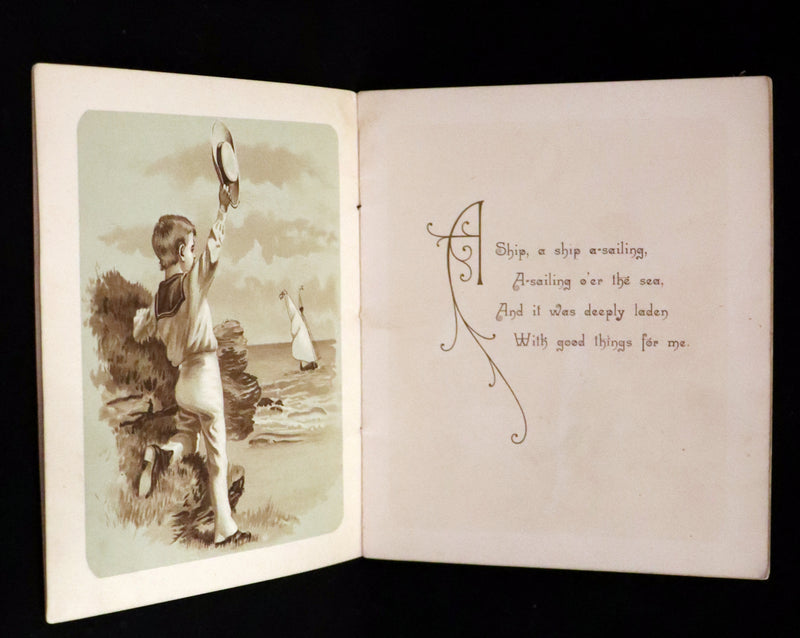 A Ship, a ship a-sailing,
A-sailing o'er the sea,
And it was deeply laden
With good things for me.